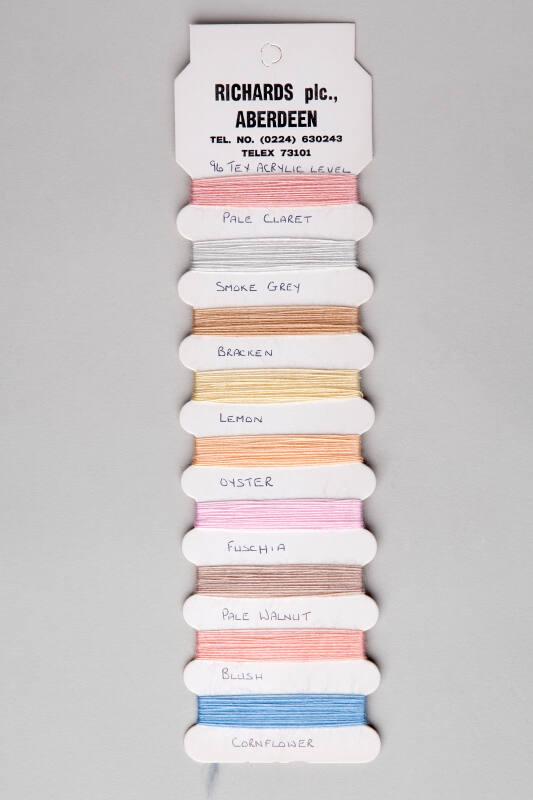 RICHARDS plc.,
ABERDEEN
TEL. NO. (0224) 630243
TELEX 73101
96 TEX ACRYLIC LEVEL
PALE CLARET
SMOKE GREY
BRACKEN
LEMON
OYSTER
FUSCHIA
PALE WALNUT
BLUSH
CORNFLOWER